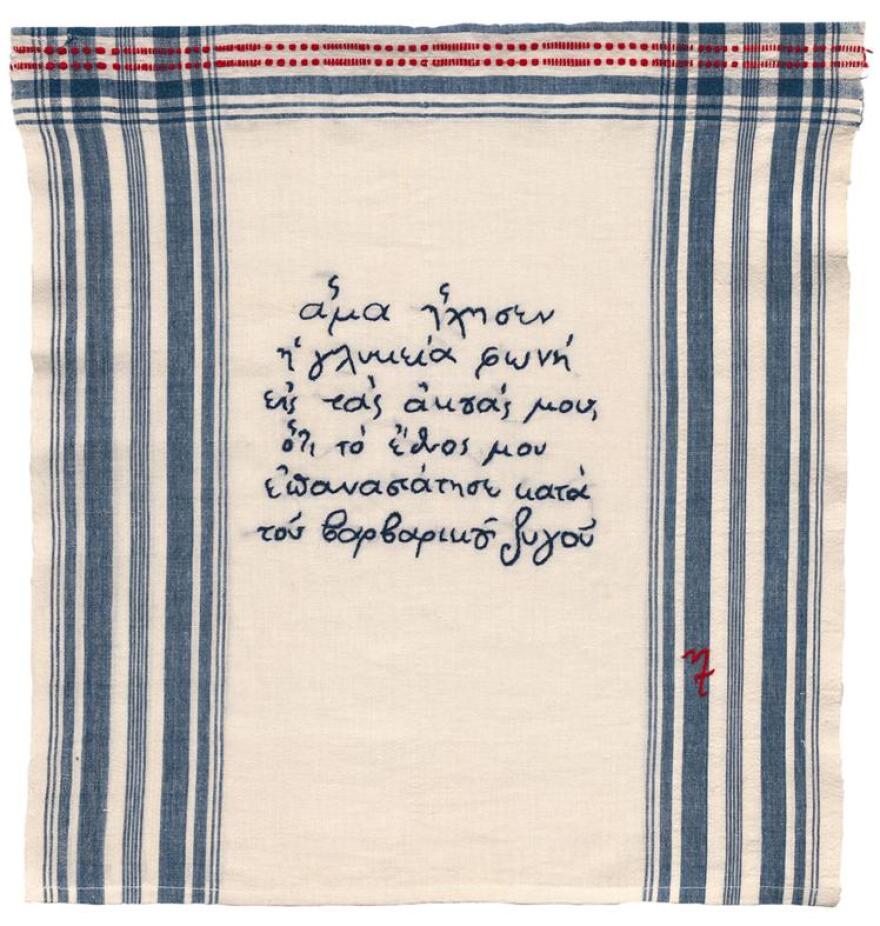 ἅμα ἤχησεν
ἡ γλυκεία φωνή
εἰς τάς ἀκοάς μου,
ὅτι τό ἔθνος μου
ἐπαναστάτησε κατά
τοῦ βαρβαρικȣ͂ ζυγοῦ